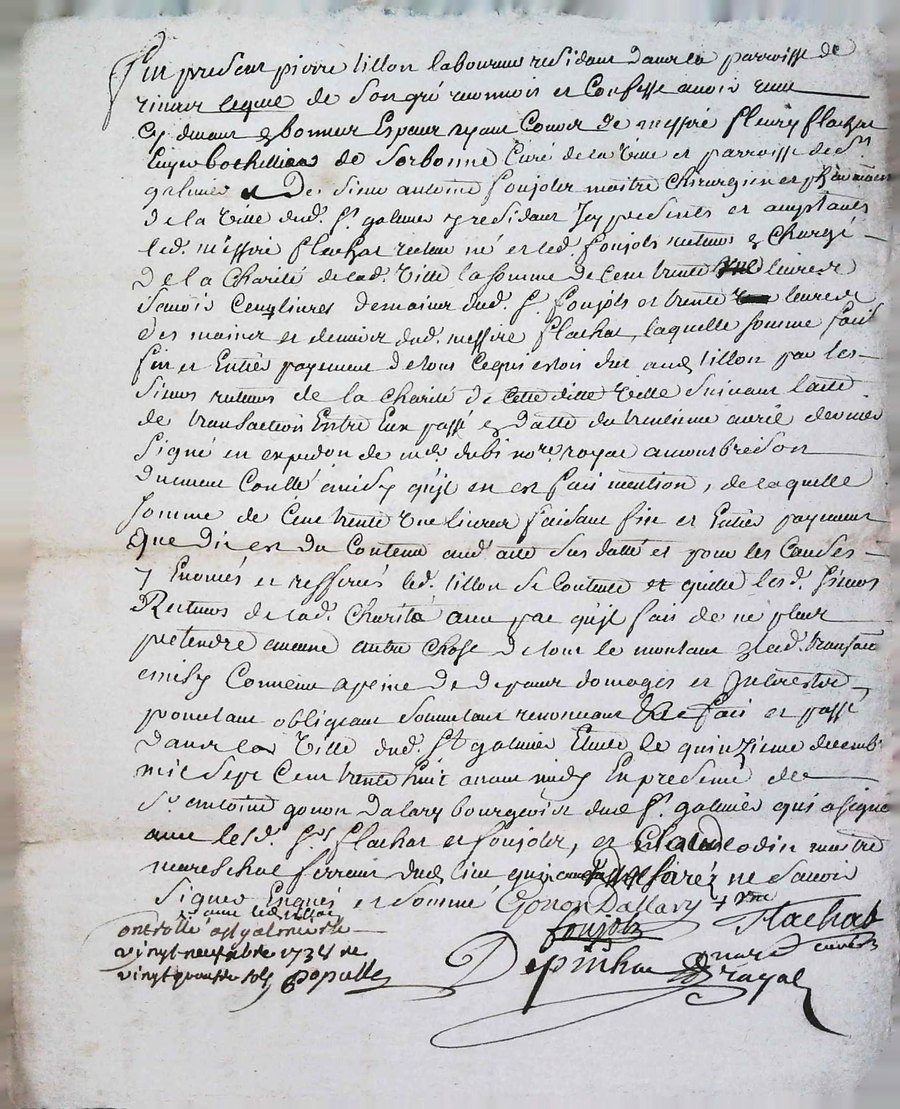 fut present pierre tillon laboureur residant dans la parroisse de
lequel de son gré reconnois et Confesse avoir receu
Cy devant & bonnes Especes ayant Cours de messire fleury flachat
bachellier de Sorbonne Curé de la Ville et parroisse de St
galmier et De sieur antoine foujols maitre chirurgien et
de la Ville dud. St galmier y residant Icy presents et acceptants
led. messire flachat recteur né et led. foujols recteur & Chargé
de la Charité de lad. Ville la somme de Cent trente livres
Savoir Cent livres des mains dud. Sr foujols et trente livres
des mains et deniers dud. messire flachat, laquelle somme fait
fin et Entier payement de tous ce qui estoit deu aud. tillon par les
Sieurs recteurs de la Charité de Cette ditte Ville Suivant lacte
de transaction Entre Eux passé & datte du trentieme avril dernier
Signé en expedition de me dubi nore. royal a montbrison
Duement Conllé ainsy quil en est fait mention, de laquelle
Somme de Cent trente une livres faisant fin et Entier payement
que dit est du Contenu aud. acte sus datté et pour les Causes
y Enoncés et refferées led. tillon se Contente et quitte lesd. sieurs
Recteurs de lad. Charité avec pac quil fait de ne plus
pretendre aucune autre chose de tout le montant de lad. transaction
ainsy Convenu a peine de depens domages et Interests
promettant obligeant Soumettant renonceant & fait et passé
Dans la Ville dud. St galmier Etude le quinzieme decemb.
mil Sept Cent trente huit avant midy En presence de
Sr antoine gonon dalary bourgeois dud. St galmier qui a signé
avec lesd. Srs flachat et foujols, et Claude odin maitre
mareschal ferrant dud. lieu qui ne Savoir
Signer Enquis et Sommé Gonon Dallary
avec led. tillon
foujols
flachat
Curé
ontrollé a St galmier le
vingt neuf xbre 1738 re
vingt quatre sols Populle
Depinhac
nore
royal